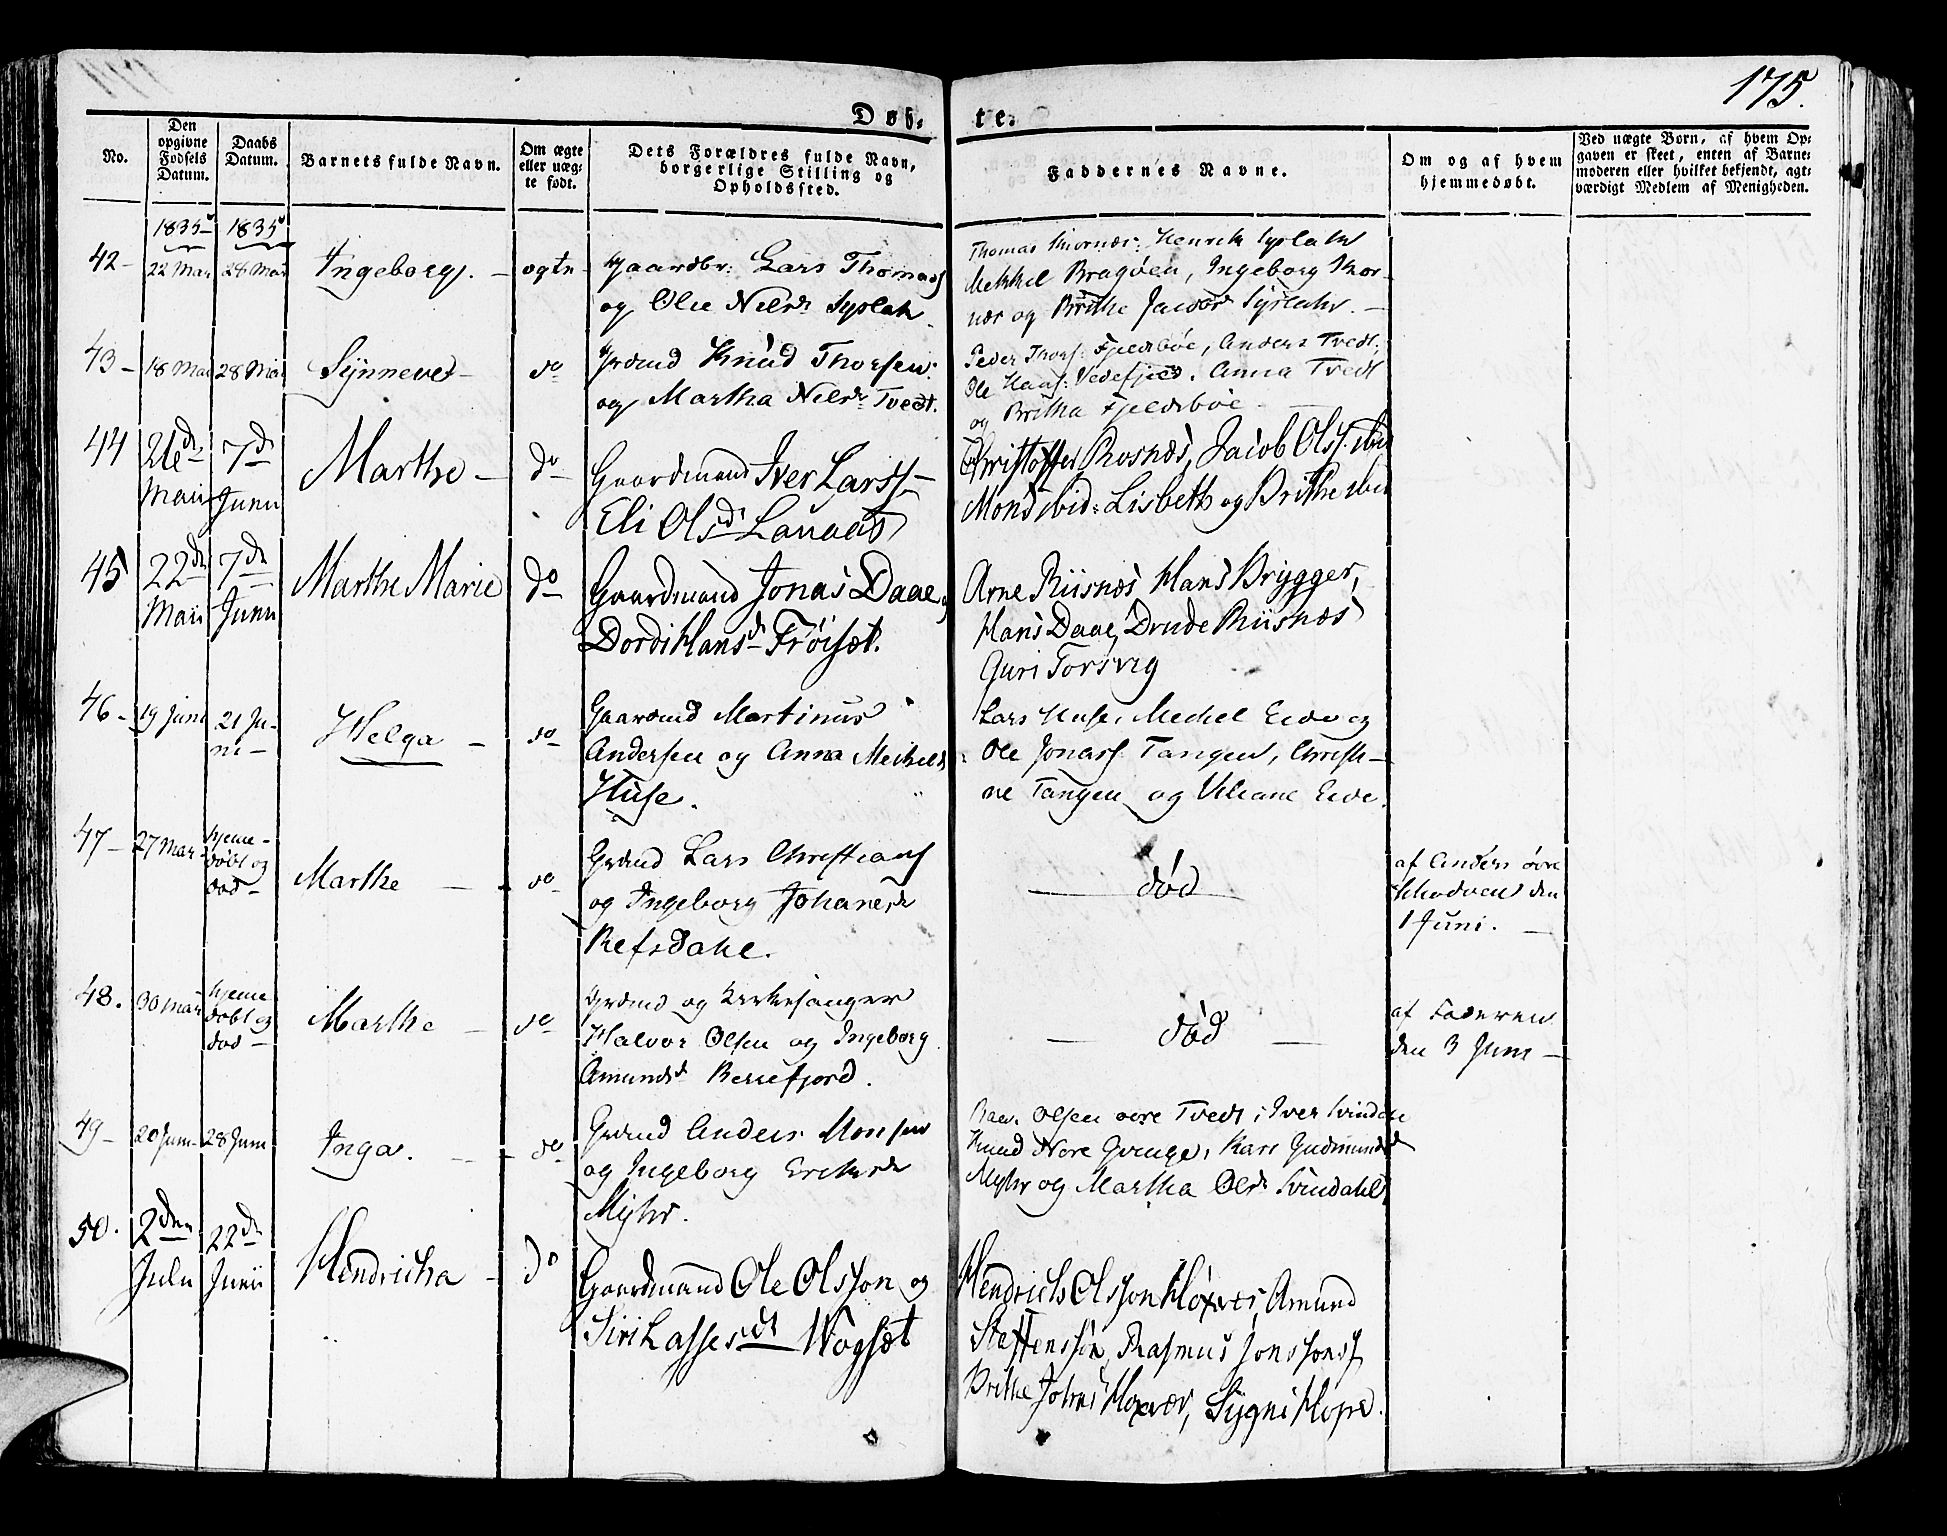 175.
Døb- te.
No.
Den opgivne Fødsels Datum.
Daabs Datum.
Barnets fulde Navn.
Om ægte eller uæg- te født.
Dets Forældres fulde Navn, borgerlige Stilling og Opholdssted.
Faddernes Navne.
Om og af hvem hjemmedøbt.
Ved uægte Børn, af hvem Op- gaven er skeet, enten af Barne- moderen eller hvilket bekjendt, agt- værdigt Medlem af Menigheden.
1835 1835
42- 22 Mai 28 Mai Ingeborg. - ægte Gaardbr: Lars Thomas
og Olie Nilsd
Mekkel Ingeborg
og Brithe
43- 18 Mai 28 Mai Synneve - do Grdmd Knud Thorsen
og Martha Nilsd Tvedt.
Peder Thors: Fjeldsbøe, Anders Tvedt,
Ole Hans: Anna Tvedt
og Britha Fjeldsbøe
44 21de Maii 7de Junii Marthe - do Gaardmand Iver Larss -
Eli Olsd
Christoffer Risnæs, Jacob Olss. ibid
Mons ibid: Lisbeth og Brithe ibid
45 22de Maii 7de Junii Marthe Marie do Gaardmand Jonas Daae og
Dordi Hansd Frøiset.
Arne Riisnæs, Hans Brygger,
Hans Daae, Drude Riisnæs
Guri Torsvig
46- 19 Juni 21 Ju- ni - Helga - do Gaardmd Martinus
Andersen og Anna Meikels
Huse.
Lars Huse, Mechel Eide og
Ole Jonass. Tangen, Christi-
ne Tangen og Eide.
47- 27 Mai hjeme- døbt og død - Marthe - do Grdmd Lars Christians
og Ingeborg Johanesd
Refsdahe.
- død -
af Anders den
1 Juni. -
48. 30 Mai hjeme døbt og død - Marthe - do Grdmd og Kirkesanger
Halvor Olsen og Ingeborg
Amundsd
- død -
af Faderen
den 3 Juni -
49- 20 Juni 28 Juni Inga. - do Grdmd Anders Monsen
og Ingeborg Eriksd
Myhr.
Olsen Tvedt, Iver Svindahl
Knud Kari Gudmundsd
Myhr og Martha Olsd Svindahl
50. 2den Julii 22de Junii Hendricha - do Gaardmand Ole Olsson og
Siri Lassesdt
Hendrich Olsson Amund
Steffenssøn, Rasmus Jonssons
Brithe Johns Sygni Hope.